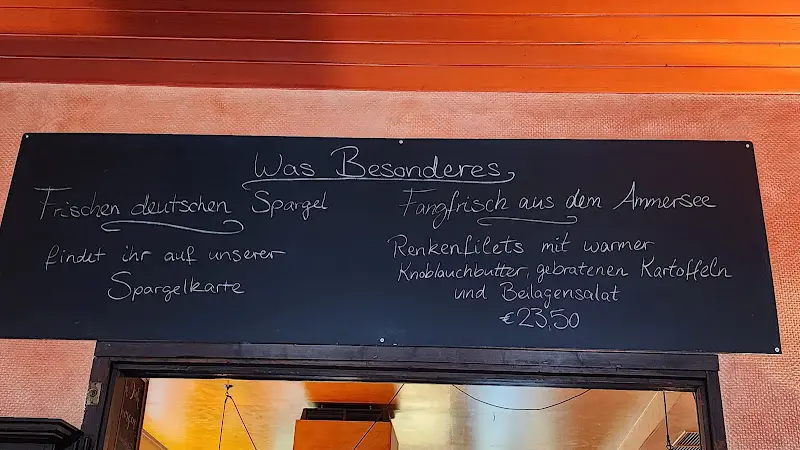 Was Besonderes
Frischen deutschen Spargel
findet ihr auf unserer
Spargelkarte
Fangfrisch aus dem Ammersee
Renkenfilets mit warmer
Knoblauchbutter, gebratenen Kartoffeln
und Beilagensalat
€23,50